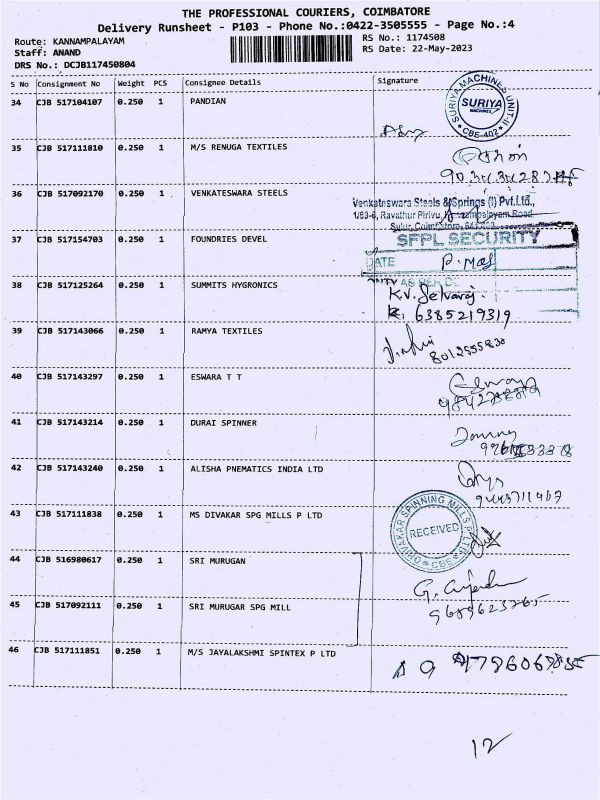 THE PROFESSIONAL COURIERS, COIMBATORE
Delivery Runsheet - P103 - Phone No.:0422-3505555 - Page No.:4
Route: KANNAMPALAYAM
RS No.: 1174508
Staff: ANAND
RS Date: 22-May-2023
DRS No.: DCJB117450804
S No Consignment No Weight PCS Consignee Details Signature
34 CJB 517104107 0.250 1 PANDIAN
SURIYA MACHINES UNIT-II
SURIYA
MACHINES
CBE-402
35 CJB 517111810 0.250 1 M/S RENUGA TEXTILES
36 CJB 517092170 0.250 1 VENKATESWARA STEELS
Venkateswara Steels & Springs (I) Pvt.Ltd.,
1/63-6, Ravathur Pirivu, Kannampalayam Road,
Sulur, Coimbatore
37 CJB 517154703 0.250 1 FOUNDRIES DEVEL
SFPL SECURITY
DATE
38 CJB 517125264 0.250 1 SUMMITS HYGRONICS
K.V. Selvaraj.
6385219319
39 CJB 517143066 0.250 1 RAMYA TEXTILES
8012555830
40 CJB 517143297 0.250 1 ESWARA T T
41 CJB 517143214 0.250 1 DURAI SPINNER
42 CJB 517143240 0.250 1 ALISHA PNEMATICS INDIA LTD
43 CJB 517111838 0.250 1 MS DIVAKAR SPG MILLS P LTD
DIVAKAR SPINNING MILLS P LTD
RECEIVED
CBE
44 CJB 516980617 0.250 1 SRI MURUGAN
45 CJB 517092111 0.250 1 SRI MURUGAR SPG MILL
9689623265
46 CJB 517111851 0.250 1 M/S JAYALAKSHMI SPINTEX P LTD
12